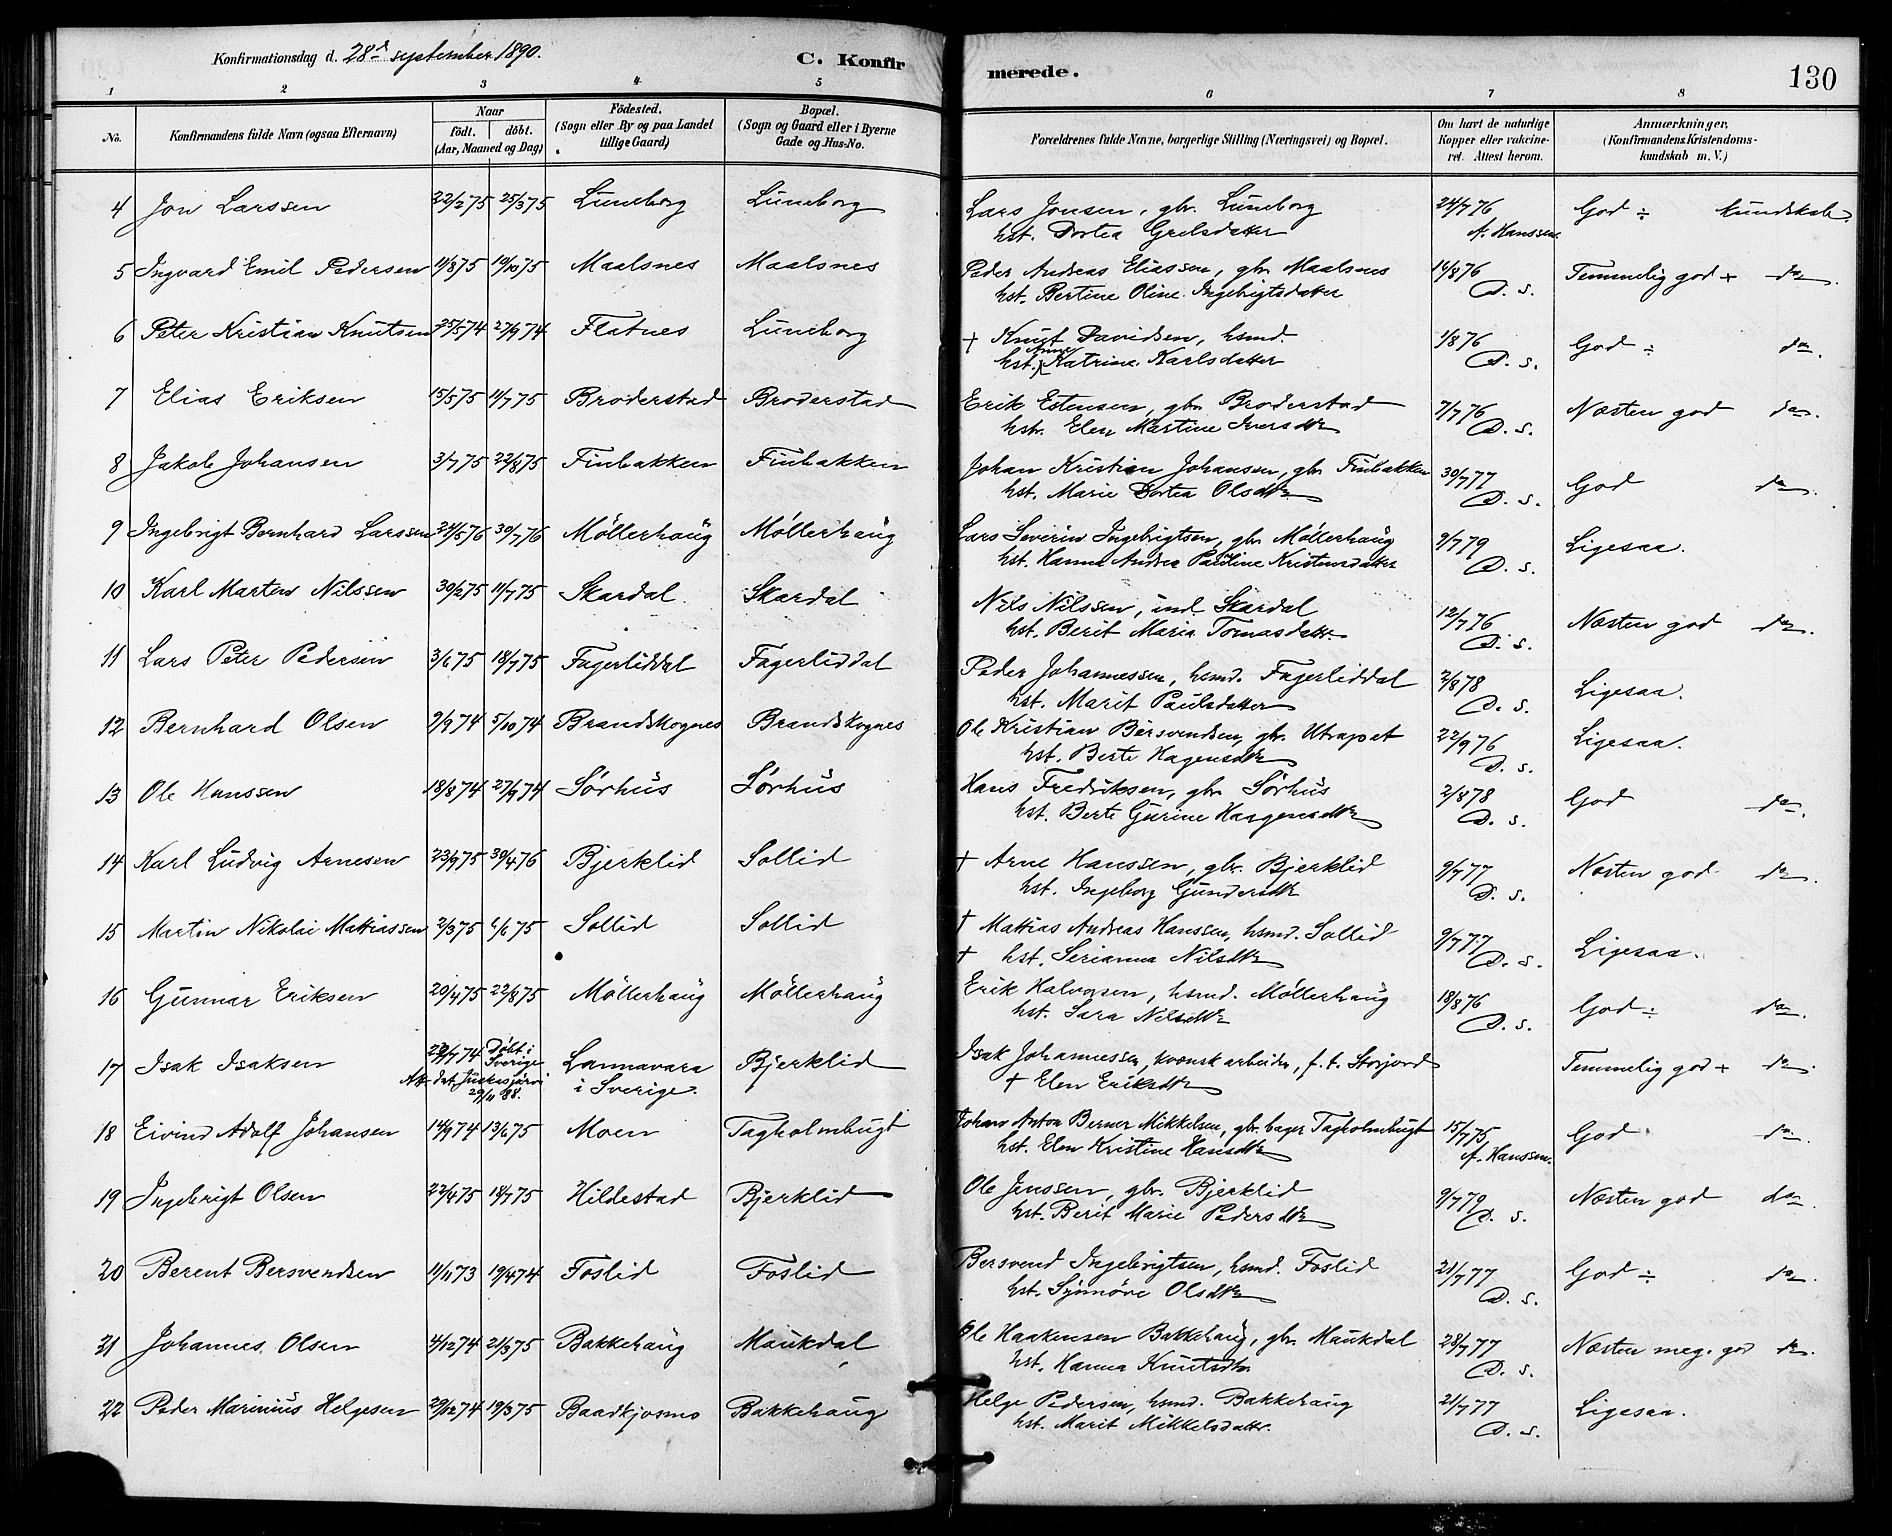 Konfirmationsdag d. 28d september 1890. C. Konfirmerede. 130
1 2 3 4 5 6 7 8
No. Konfirmandens fulde Navn (ogsaa Efternavn) Naar födt. döbt. (Aar, Maaned og Dag) Födested. (Sogn eller By og paa Landet tillige Gaard) Bopæl. (Sogn og Gaard eller i Byerne Gade og Hus-No. Forældrenes fulde Navne, borgerlige Stilling (Næringsvei) og Bopæl. Om havt de naturlige Kopper eller vakcineret. Attest herom. Anmærkninger. (Konfirmandens Kristendomskundskab m. V.)
4 Jon Larssen 22/2 75 25/3 75 Luneborg Luneborg Lars Jonsen, gbr. Luneborg 24/7 76 God ÷ kundskab.
hst. Dortea Grelsdatter A. Hanssen
5 Ingvard Emil Pedersen 11/8 75 10/10 75 Maalsnes Maalsnes Peder Andreas Eliassen, gbr. Maalsnes 16/8 76 Temmelig god + do.
hst. Bertine Oline Ingebrigtsdatter D. s.
6 Peter Kristian Knutsen 25/5 74 27/9 74 Flatnes Luneborg † Knut Davidsen, hsmd. 1/8 76 God ÷ do.
hst. Anne Katrine Karlsdatter D. s.
7 Elias Eriksen 15/5 75 11/7 75 Broderstad Broderstad Erik Estensen, gbr. Broderstad 7/7 76 Næsten god do.
hstr. Elen Martine Iversdtr D. s.
8 Jakob Johansen 3/7 75 22/8 75 Finbakken Finbakken Johan Kristian Johansen, gbr. Finbakken 30/7 77 God do.
hst. Marie Dortea Olsdtr D. s.
9 Ingebrigt Bernhard Larssen 24/5 76 30/7 76 Møllerhaug Møllerhaug Lars Severin Ingebrigtsen, gbr. Møllerhaug 9/7 79 Ligesaa.
hst. Hanna Andrea Pauline Kristensdatter D. s.
10 Karl Marten Nilssen 11/7 75 Skardal Skardal Nils Nilssen, ind. Skardal 12/7 76 Næsten god do.
hst. Berit Maria Tomasdatr. D. s.
11 Lars Peter Pedersen 3/6 75 18/7 75 Fagerliddal Fagerliddal Peder Johannessen, hsmd. Fagerliddal 2/8 78 Ligesaa.
hst. Marit Paulsdatter D. s.
12 Bernhard Olsen 9/9 74 5/10 74 Brandskognes Brandskognes Ole Kristian Bersvendsen, gbr. Utrapet 22/9 76 Ligesaa.
hst. Berte Hagensdtr D. s.
13 Ole Hanssen 18/8 74 27/9 74 Sørhus Sørhus Hans Fredriksen, gbr. Sørhus 2/8 78 God do.
hst. Berte Gurine Haagensdtr D. s.
14 Karl Ludvig Arnesen 23/9 75 30/4 76 Bjerklid Sollid † Arne Hanssen, gbr. Bjerklid 9/7 77 Næsten god do.
hst. Ingeborg Gundersdtr D. s.
15 Martin Nikolai Mattiassen 2/3 75 6/6 75 Sollid Sollid † Mattias Andreas Hanssen, hsmd. Sollid 9/7 77 Ligesaa.
† hst. Serianna Nilsdtr D. s.
16 Gunnar Eriksen 20/4 75 22/8 75 Møllerhaug Møllerhaug Erik Halvorsen, hsmd. Møllerhaug 18/8 76 God ÷ do.
hst. Sara Nilsdtr D. s.
17 Isak Isaksen 29/7 74 Døbt i Sverige Lannavara i Sverige. Bjerklid Isak Johannessen, kvænsk arbeider, f. t. Storjord Temmelig god + do.
Att. dat. Jukkasjärvi 29/11 88. † Elen Eriksdtr
18 Eivind Adolf Johansen 14/9 74 13/6 75 Moen Tagholmbugt Johan Anton Berner Mikkelsen, gbr. bager Tagholmbugt 15/7 75 God do.
hst. Elen Kristine Hansdtr A. Hanssen.
19 Ingebrigt Olsen 22/4 75 18/7 75 Hildestad Bjerklid Ole Jenssen, gbr. Bjerklid 9/7 79 Næsten god do.
hst. Berit Marie Pedersdtr D. s.
20 Berent Bersvendsen 11/11 73 19/4 74 Foslid Foslid Bersvend Ingebrigtsen, hsmd. Foslid 21/7 77 God ÷ do.
hst. Synnøve Olsdtr D. s.
21 Johannes Olsen 4/12 74 21/3 75 Bakkehaug Maukdal Ole Haakensen Bakkehaug, gbr. Maukdal 28/7 77 Næsten meg. god do.
hst. Hanna Knutsdtr D. s.
22 Peder Marinius Helgesen 29/12 74 19/3 75 Baadkjosmo Bakkehaug Helge Pedersen, hsmd. Bakkehaug 21/7 77 Ligesaa.
hst. Marit Mikkelsdatr. D. s.